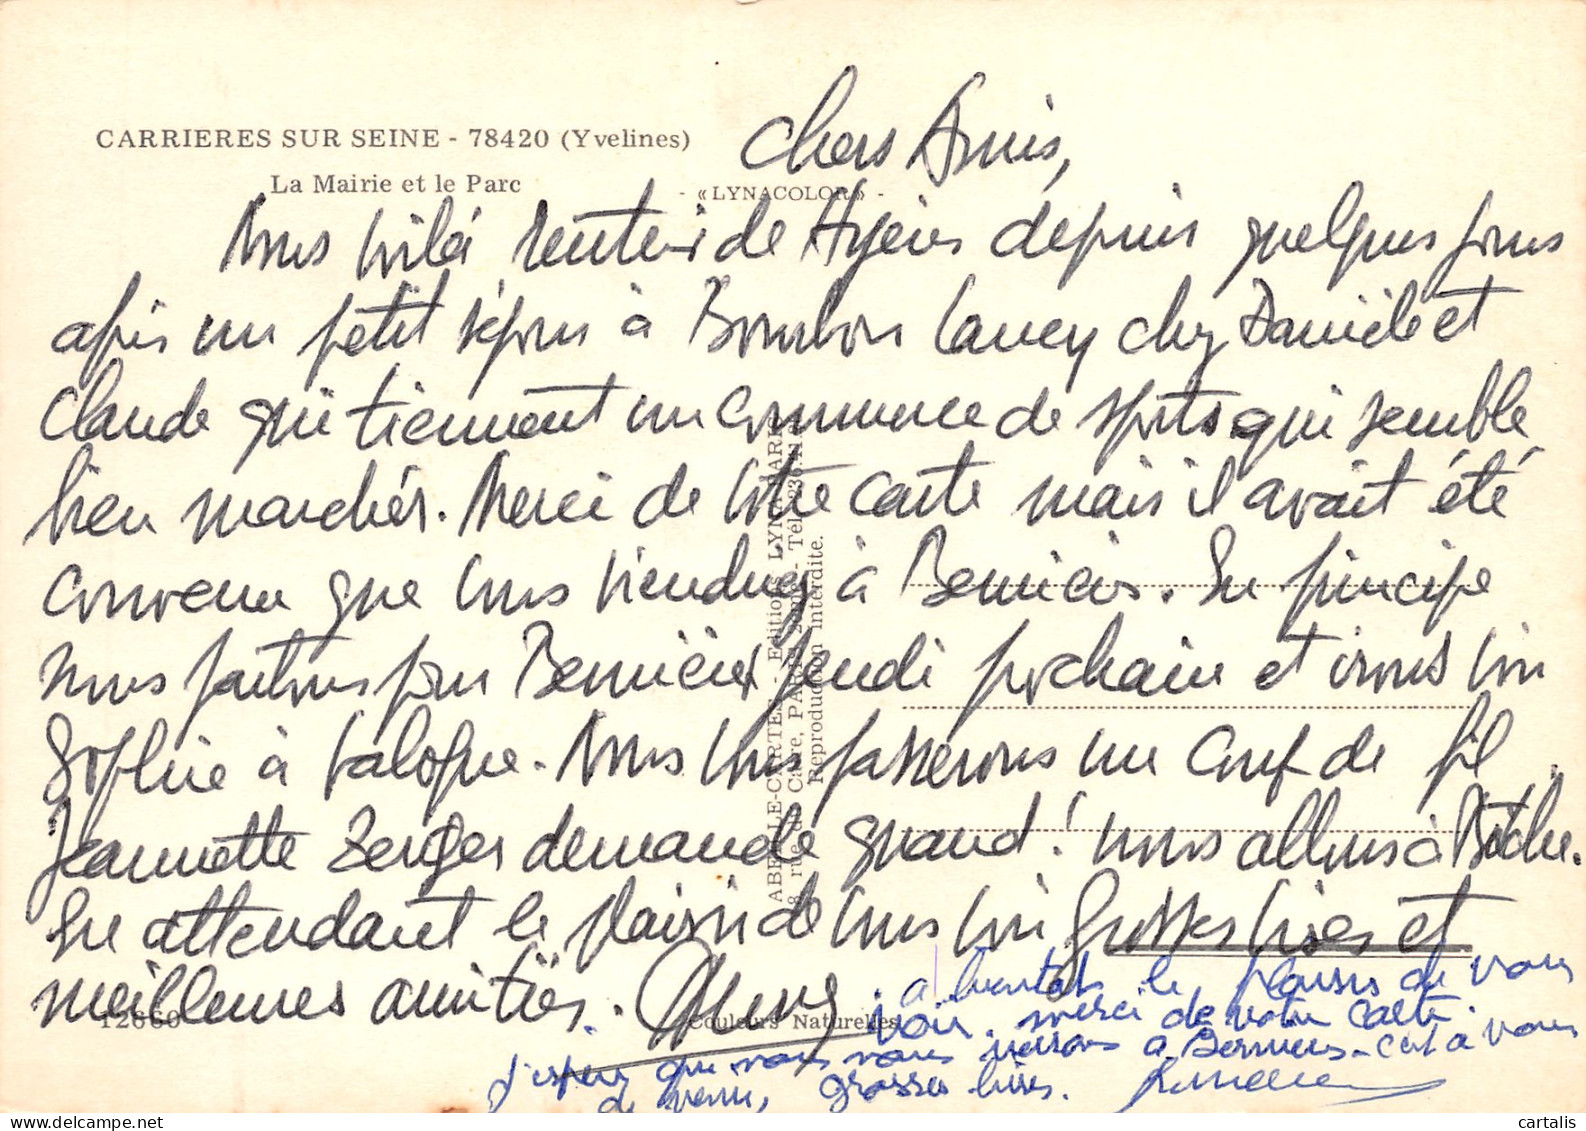 CARRIERES SUR SEINE - 78420 (Yvelines)
La Mairie et le Parc
- «LYNACOLOR» -
Chers Amis,
Nous voilà de Hyères depuis quelques jours
après un petit séjour à Bourbon Lancy chez Danièle et
Claude qui tiennent un commerce de sports qui semble
bien marcher. Merci de votre carte mais il avait été
convenu que vous viendrez à Bernières. En principe
nous partons pour Bernières jeudi prochain et irons voir
Sophie à Valogne. Nous vous passerons un coup de fil
Jeannette demande quand! nous allons à Bitche.
En attendant le plaisir de vous voir grosses bises et
meilleures amitiés.
a bientôt le plaisir de vous
voir. merci de votre carte.
j'espère que nous nous verrons à Bernières - c'est à vous
de venir, grosses bises.
ABEILLE-CARTES - Editions LYNA-PARIS
8, rue du Caire, PARIS - Tél.
Reproduction interdite.
12660
Couleurs Naturelles
cartalis
delcampe.net